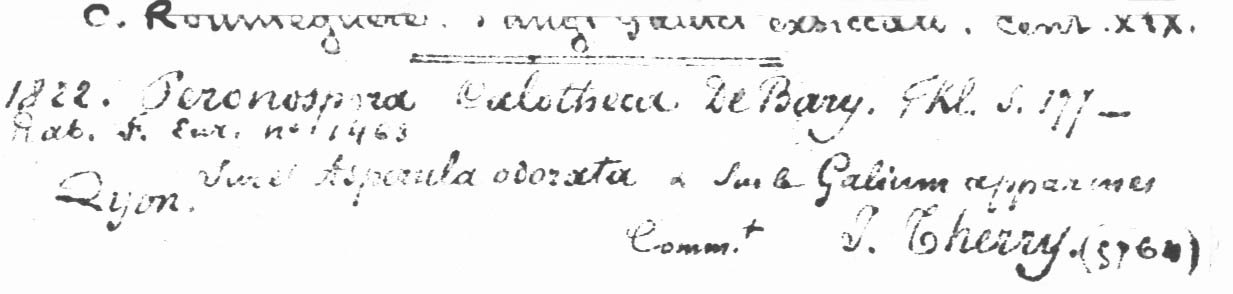 C. Roumeguère. Fungi Gallici exsiccati. Cent. XIX.
1822. Peronospora Calotheca De Bary. Fkl. S. 177—
Rab. F. Eur. nº 1463
Sur l'Asperula odorata & sur le Galium apparines
Lyon.
Comm.t J. Therry. (5764)